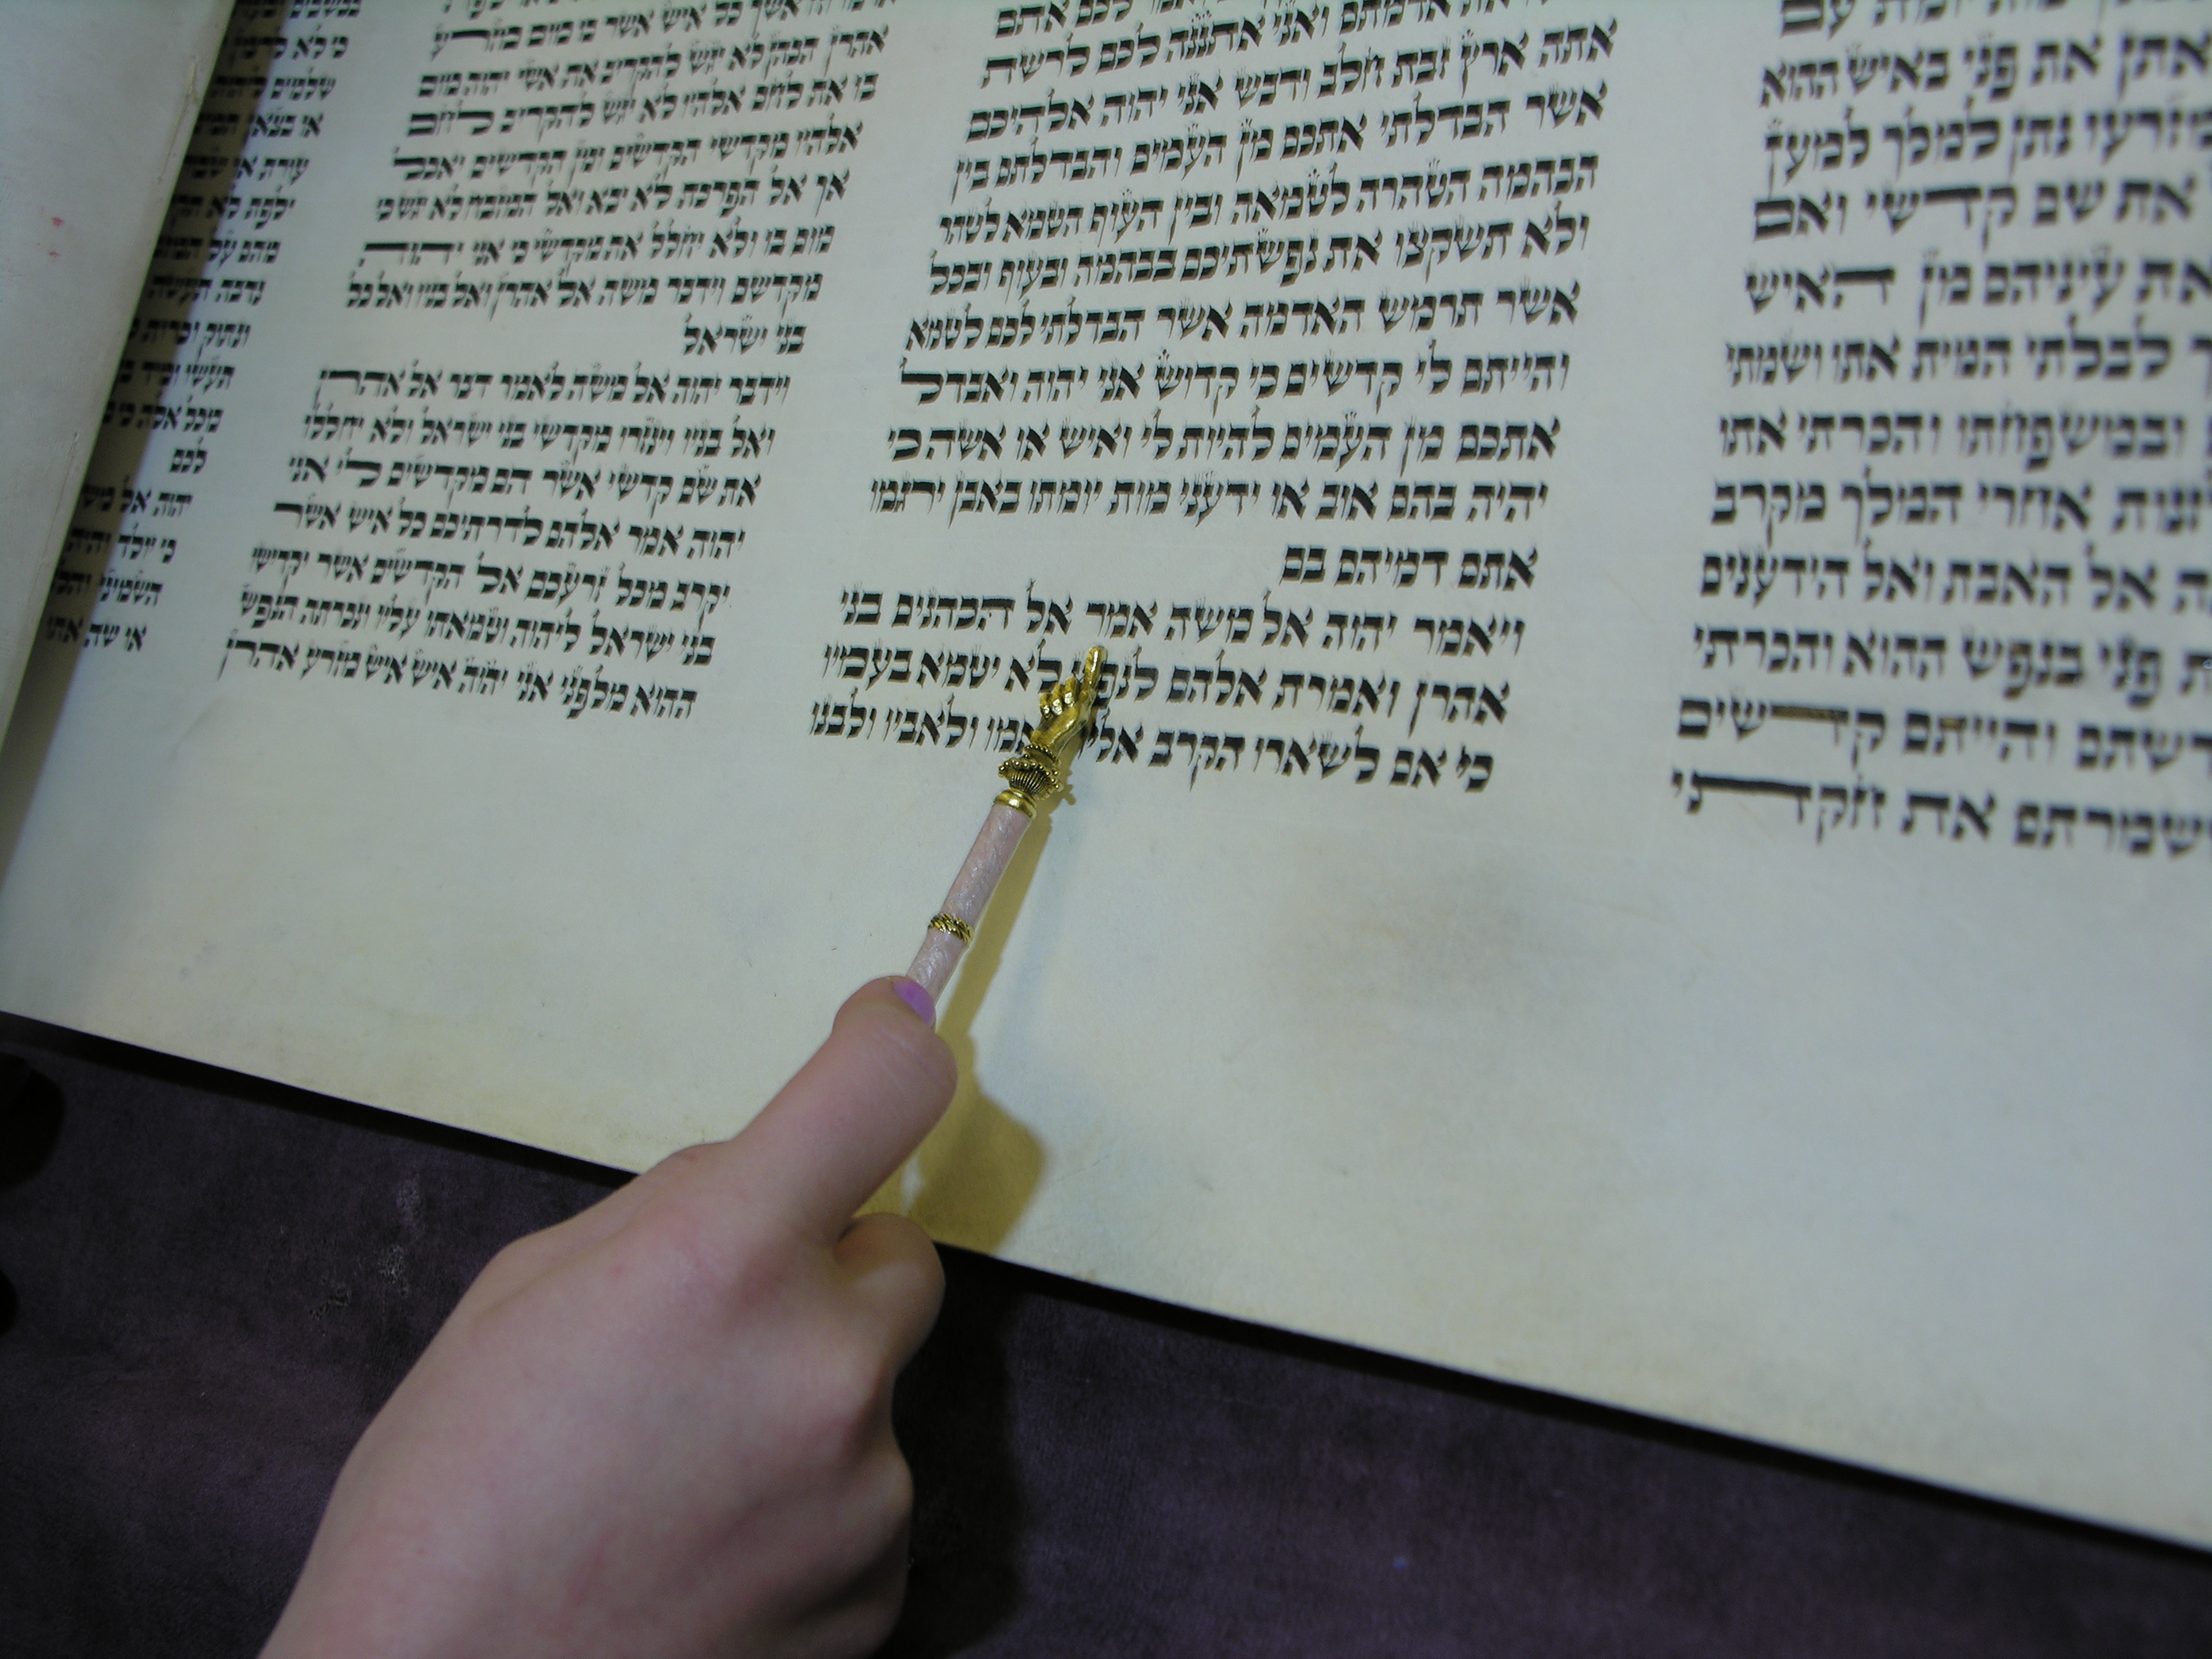 אתן את פני באיש ההוא
מזרעו נתן למלך למען
את שם קדשי ואם
את עיניהם מן האיש
לבלתי המית אתו ושמתי
ובמשפחתו והכרתי אתו
אחרי המלך מקרב
אל האבת ואל הידענים
פני בנפש ההוא והכרתי
והייתם קדשים
ושמרתם את חקתי
לכם אתם
את אדמתם ואני אתננה לכם לרשת
אתה ארץ זבת חלב ודבש אני יהוה אלהיכם
אשר הבדלתי אתכם מן העמים והבדלתם בין
הבהמה הטהרה לטמאה ובין העוף הטמא לטהר
ולא תשקצו את נפשתיכם בבהמה ובעוף ובכל
אשר תרמש האדמה אשר הבדלתי לכם לטמא
והייתם לי קדשים כי קדוש אני יהוה ואבדל
אתכם מן העמים להיות לי ואיש או אשה כי
יהיה בהם אוב או ידעני מות יומתו באבן ירגמו
אתם דמיהם בם
ויאמר יהוה אל משה אמר אל הכהנים בני
אהרן ואמרת אלהם לנפש לא יטמא בעמיו
כי אם לשארו הקרב אליו לאמו ולאביו ולבנו
כל איש אשר בו מום מזרע
אהרן הכהן לא יגש להקריב את אשי יהוה מום
בו את לחם אלהיו לא יגש להקריב לחם
אלהיו מקדשי הקדשים ומן הקדשים יאכל
אך אל הפרכת לא יבא ואל המזבח לא יגש כי
מום בו ולא יחלל את מקדשי כי אני יהוה
מקדשם וידבר משה אל אהרן ואל בניו ואל כל
בני ישראל
וידבר יהוה אל משה לאמר דבר אל אהרן
ואל בניו וינזרו מקדשי בני ישראל ולא יחללו
את שם קדשי אשר הם מקדשים לי אני
יהוה אמר אלהם לדרתיכם כל איש אשר
יקרב מכל זרעכם אל הקדשים אשר יקדישו
בני ישראל ליהוה וטמאתו עליו ונכרתה הנפש
ההוא מלפני אני יהוה איש איש מזרע אהרן
כי לא לרצון
שלמים ליהוה
או בצאן
עורת או
ילפת לא
מהם על
נדבה תעשה
ונתוק וכרות
תעשו ומיד
מכל אלה
לכם
יהוה אל
כי יולד והיה
השמיני
או שה אתו